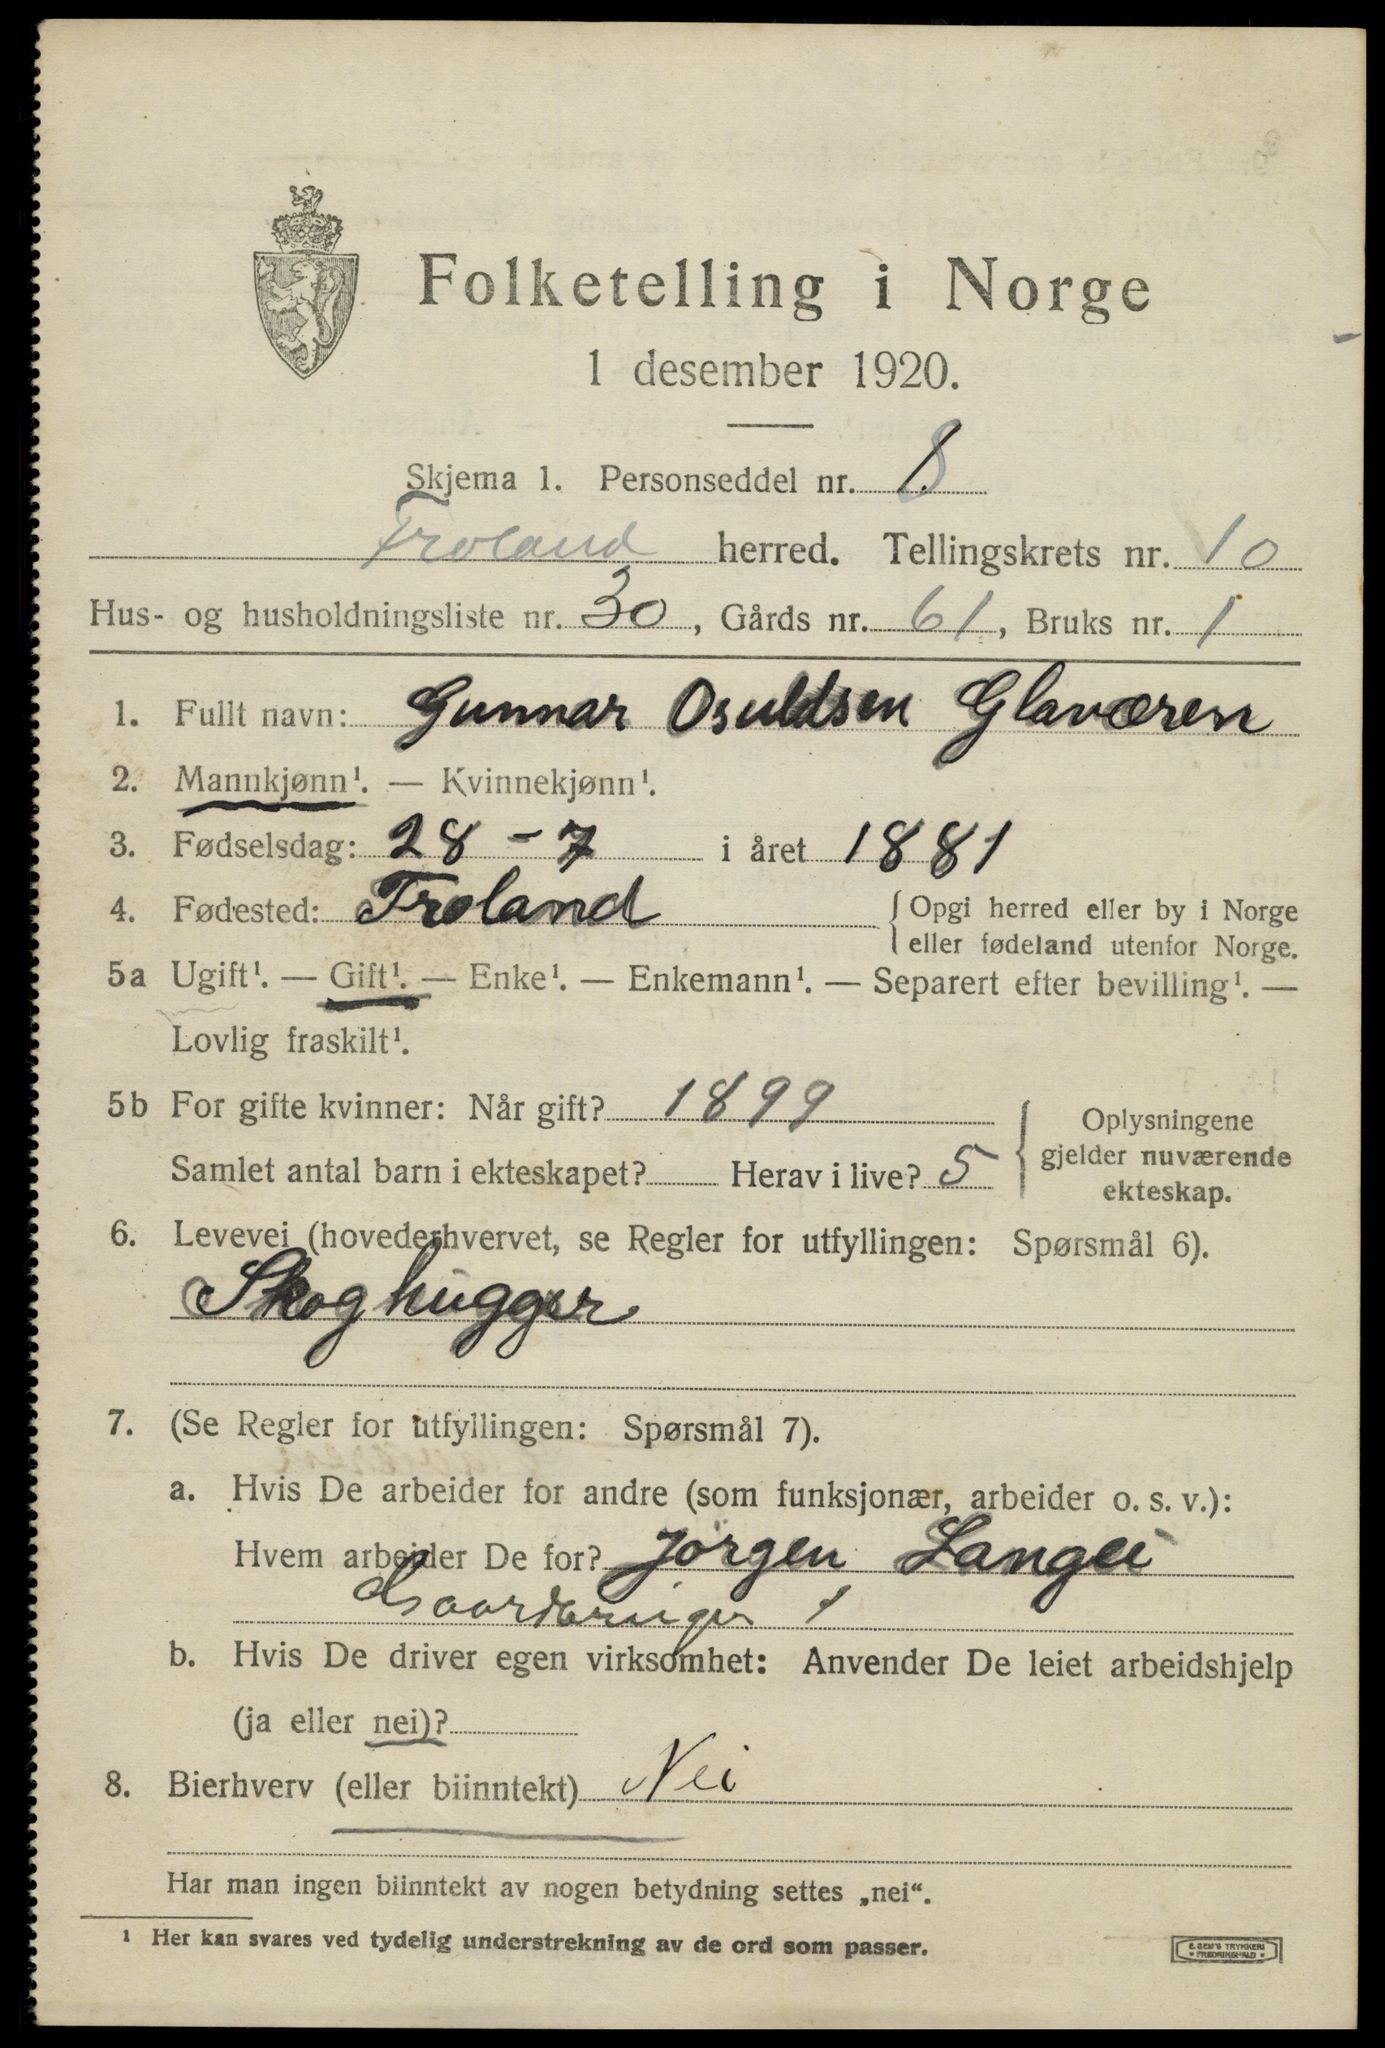 Folketelling i Norge
1 desember 1920.
Skjema 1. Personseddel nr. 8
Froland herred. Tellingskrets nr. 10
Hus- og husholdningsliste nr. 30, Gårds nr. 61, Bruks nr. 1
1. Fullt navn: Gunnar Osuldsen Glaværen
2. Mannkjønn¹. — Kvinnekjønn¹.
3. Fødselsdag: 28 - 7 i året 1881
4. Fødested: Froland {Opgi herred eller by i Norge
eller fødeland utenfor Norge.
5a Ugift¹. — Gift¹. — Enke¹. — Enkemann¹. — Separert efter bevilling¹. —
Lovlig fraskilt¹.
5b For gifte kvinner: Når gift? 1899
Samlet antal barn i ekteskapet? Herav i live? 5
Oplysningene
gjelder nuværende
ekteskap.
6. Levevei (hovederhvervet, se Regler for utfyllingen: Spørsmål 6).
Skoghugger
7. (Se Regler for utfyllingen: Spørsmål 7).
a. Hvis De arbeider for andre (som funksjonær, arbeider o. s. v.):
Hvem arbeider De for? Jørgen Langei
b. Hvis De driver egen virksomhet: Anvender De leiet arbeidshjelp
(ja eller nei)?
8. Bierhverv (eller biinntekt) Nei
Har man ingen biinntekt av nogen betydning settes „nei“.
¹ Her kan svares ved tydelig understrekning av de ord som passer.
E. SEM'S TRYKKERI
* FREDRIKSHALD *